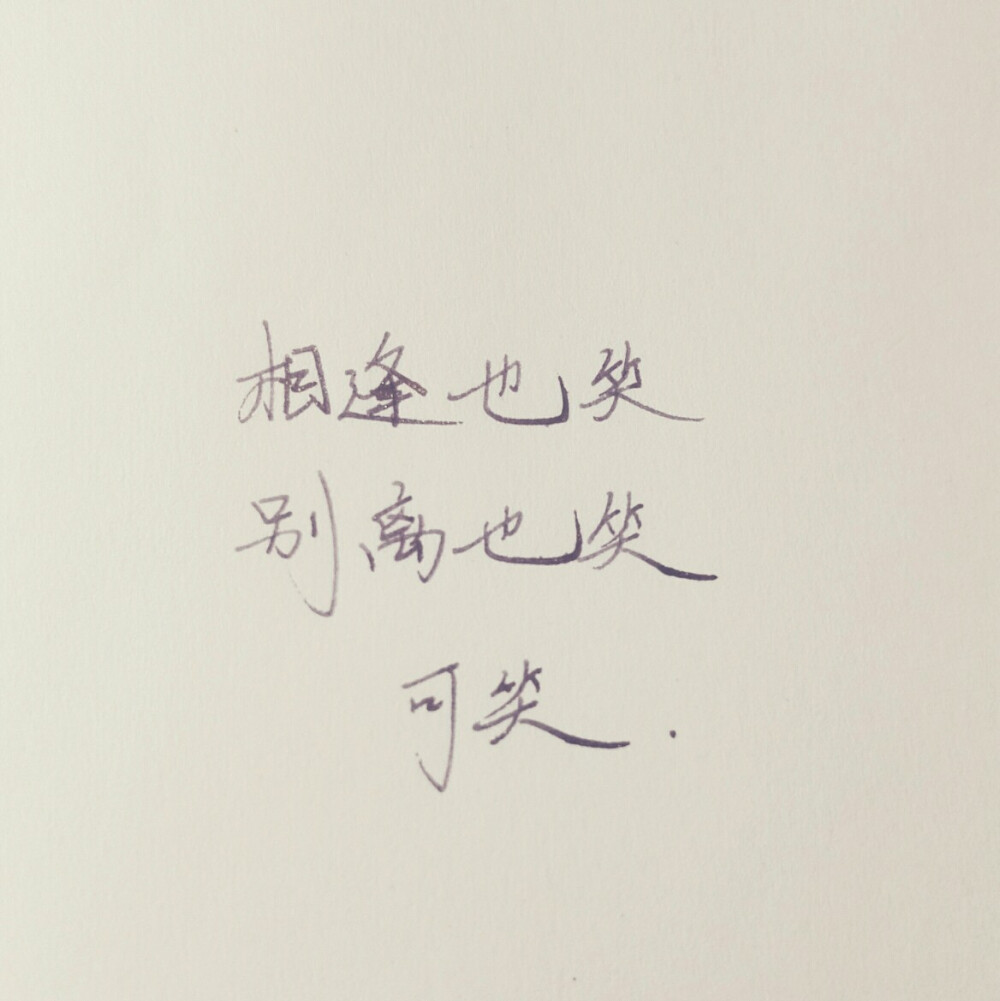 相逢也笑
别离也笑
可笑.